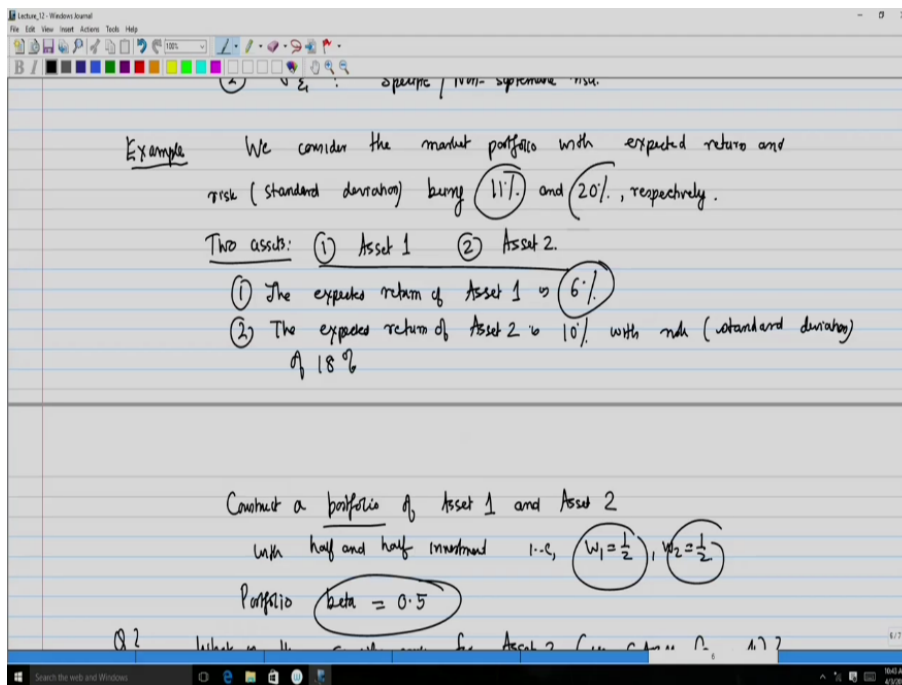 Lecture_12 - Windows Journal
File Edit View Insert Actions Tools Help
100%
B I
② σ ε₁ : Specific / Non-systematic risk.
Example We consider the market portfolio with expected return and
risk (standard deviation) being 11% and 20%, respectively.
Two assets: ① Asset 1 ② Asset 2.
① The expected return of Asset 1 is 6%
② The expected return of Asset 2 is 10% with risk (standard deviation)
of 18%
Construct a portfolio of Asset 1 and Asset 2
with half and half investment i.e, W₁ = 1/2, W₂ = 1/2
Portfolio beta = 0.5
Q? What is the for Asset 2
6/7
6
Search the web and Windows
10:43 A